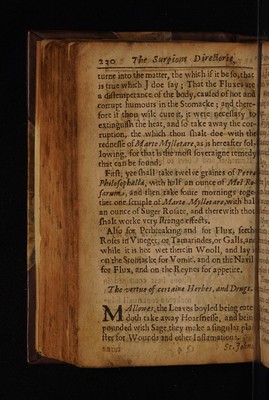 230 The Surgions Directorie,
turne into the matter, the which if it be so, that
is true which J doe say; That the Fluxes are
a disturperance of the body, caused of hot and
corrupt humours in the Stomacke; and there-
fore if thou wilt cure it, it were necessary to
extinguish the heat, and so take away the cor-
ruption, the which thou shalt doe with the
rednesse of Marte Mylletare, as is hereafter fol-
lowing, for that is the most soveraigne remedy
that can be found.
First, yee shall take twelve graines of Petra
Philosophalla, with half an ounce of Mel Ro-
sarum, and then take foure mornings toge-
ther one scruple of Marte Mylletare, with hal
an ounce of Suger Rosate, and therewith thou
shalt worke very strange effects,
Also for Perbreaking and for Flux, seeth
Roses in Vineger, or Tamarindes, or Galls, and
while it is hot wet therein Wooll, and lay i
on the Stomacke for Vomit, and on the Navil
for Flux, and on the Reynes for appetite.
The vertue of certaine Herbes, and Drogs.
MAllowes, the Leaves boyled being eate
doth take away Hoarsnesse, and bein
pounded with Sage, they make a singular pla
ster for Wounds and other Inflamations.
St. John